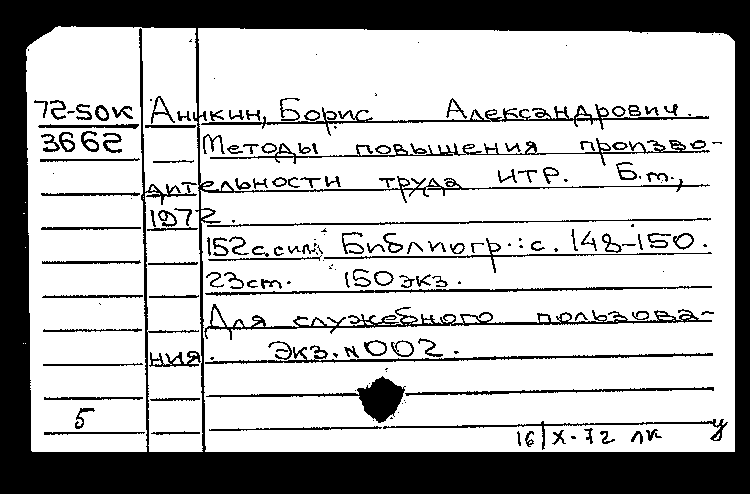 72-50к Аникин, Борис Александрович.
3662 Методы повышения произво-
дительности труда ИТР. Б.м.,
1972.
152с.сил; Библиогр.: с. 148-150.
23см. 150 экз.
Для служебного пользова-
ния. Экз. №002.
5
16/X-72 лк у